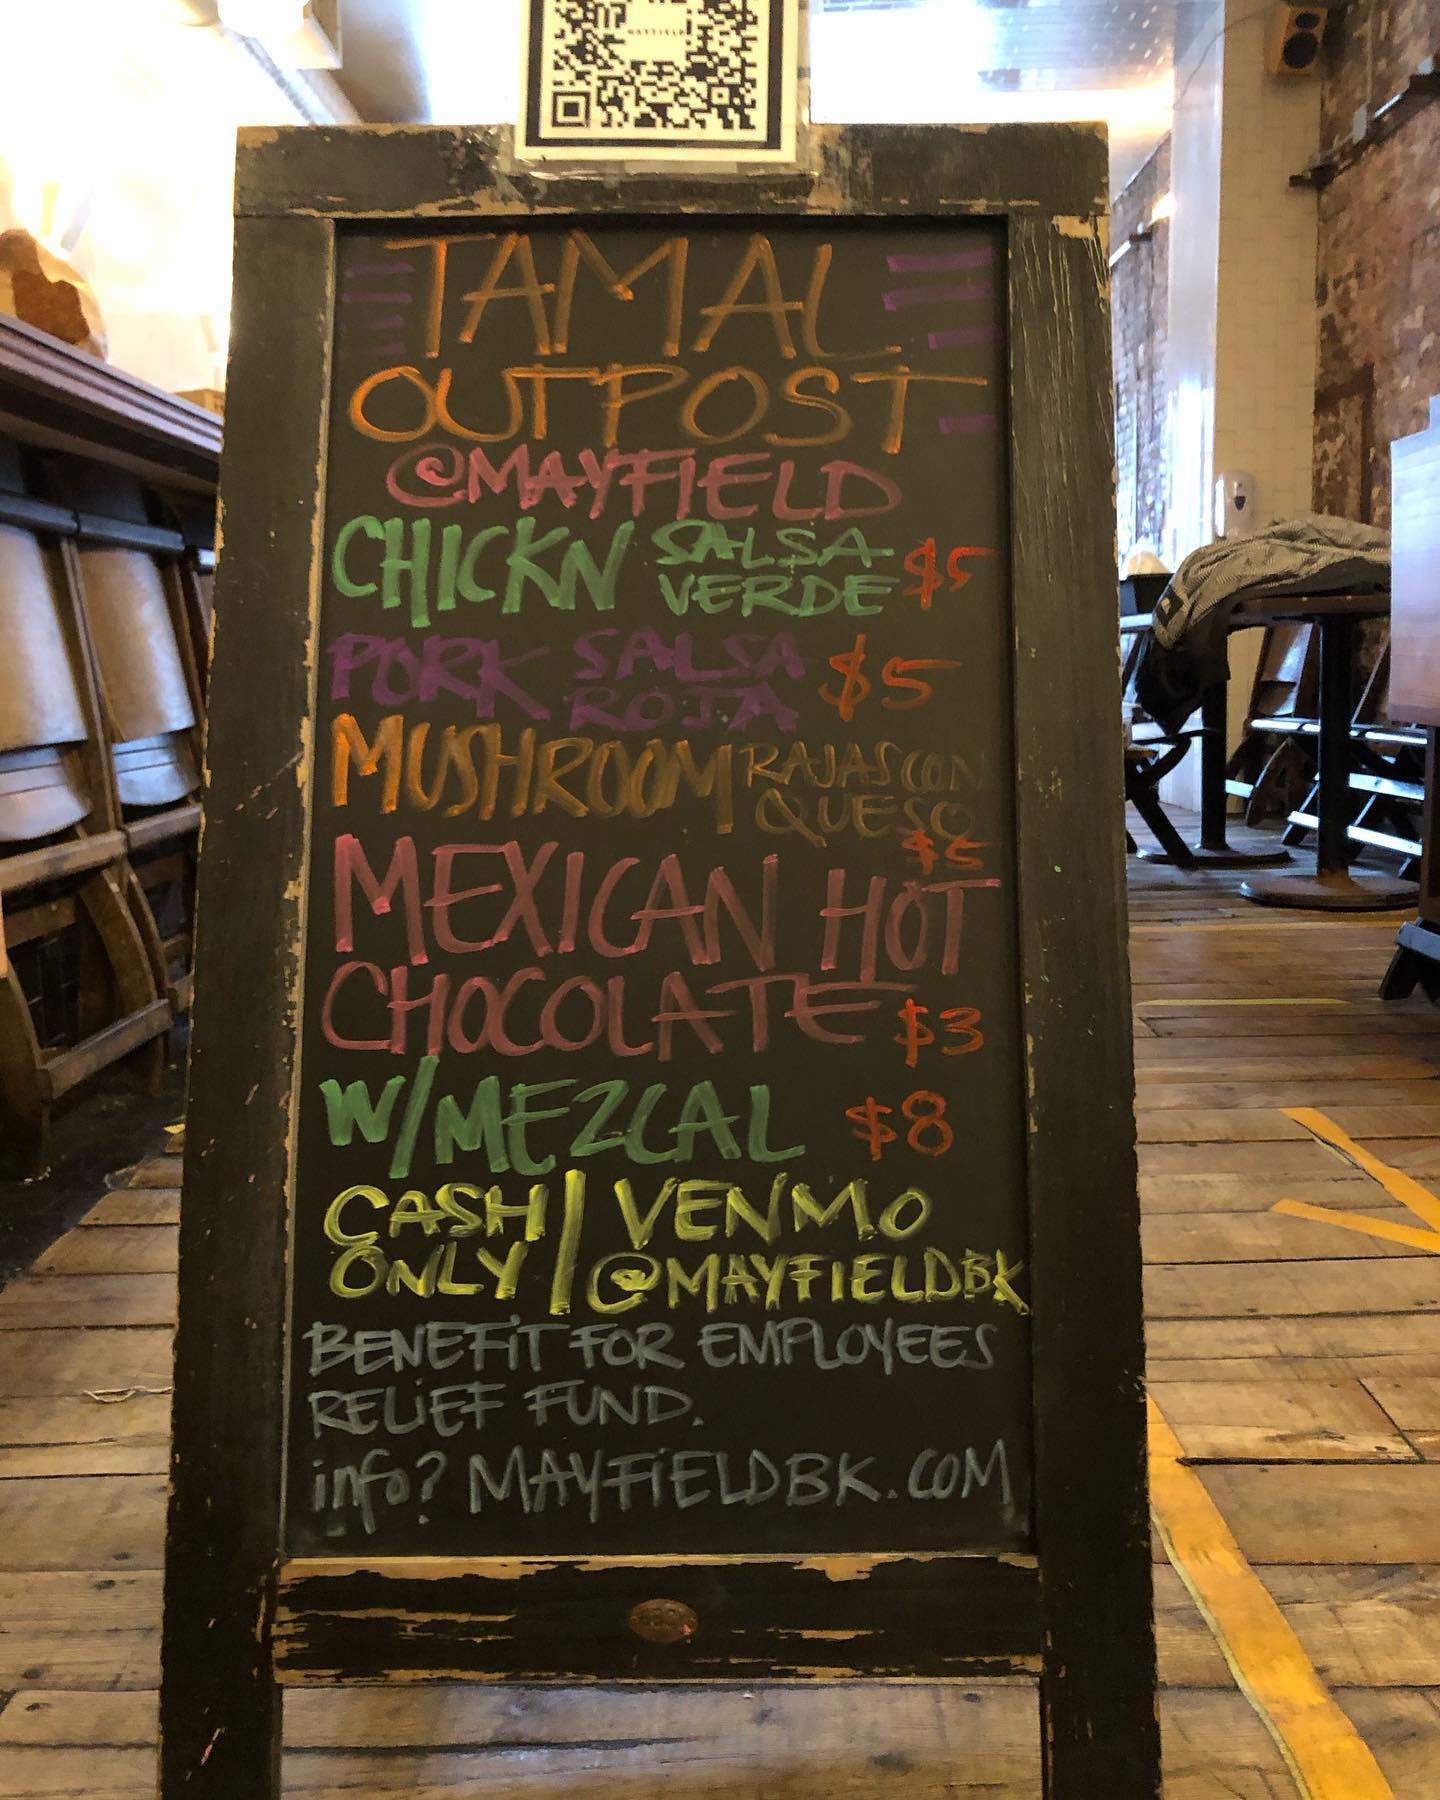 MAYFIELD
TAMAL
OUTPOST
@MAYFIELD
CHICKN SALSA VERDE $5
PORK SALSA ROJA $5
MUSHROOM RAJAS CON QUESO
$5
MEXICAN HOT
CHOCOLATE $3
W/MEZCAL $8
CASH ONLY / VENMO @MAYFIELDBK
BENEFIT FOR EMPLOYEES
RELIEF FUND.
info? MAYFIELDBK.COM